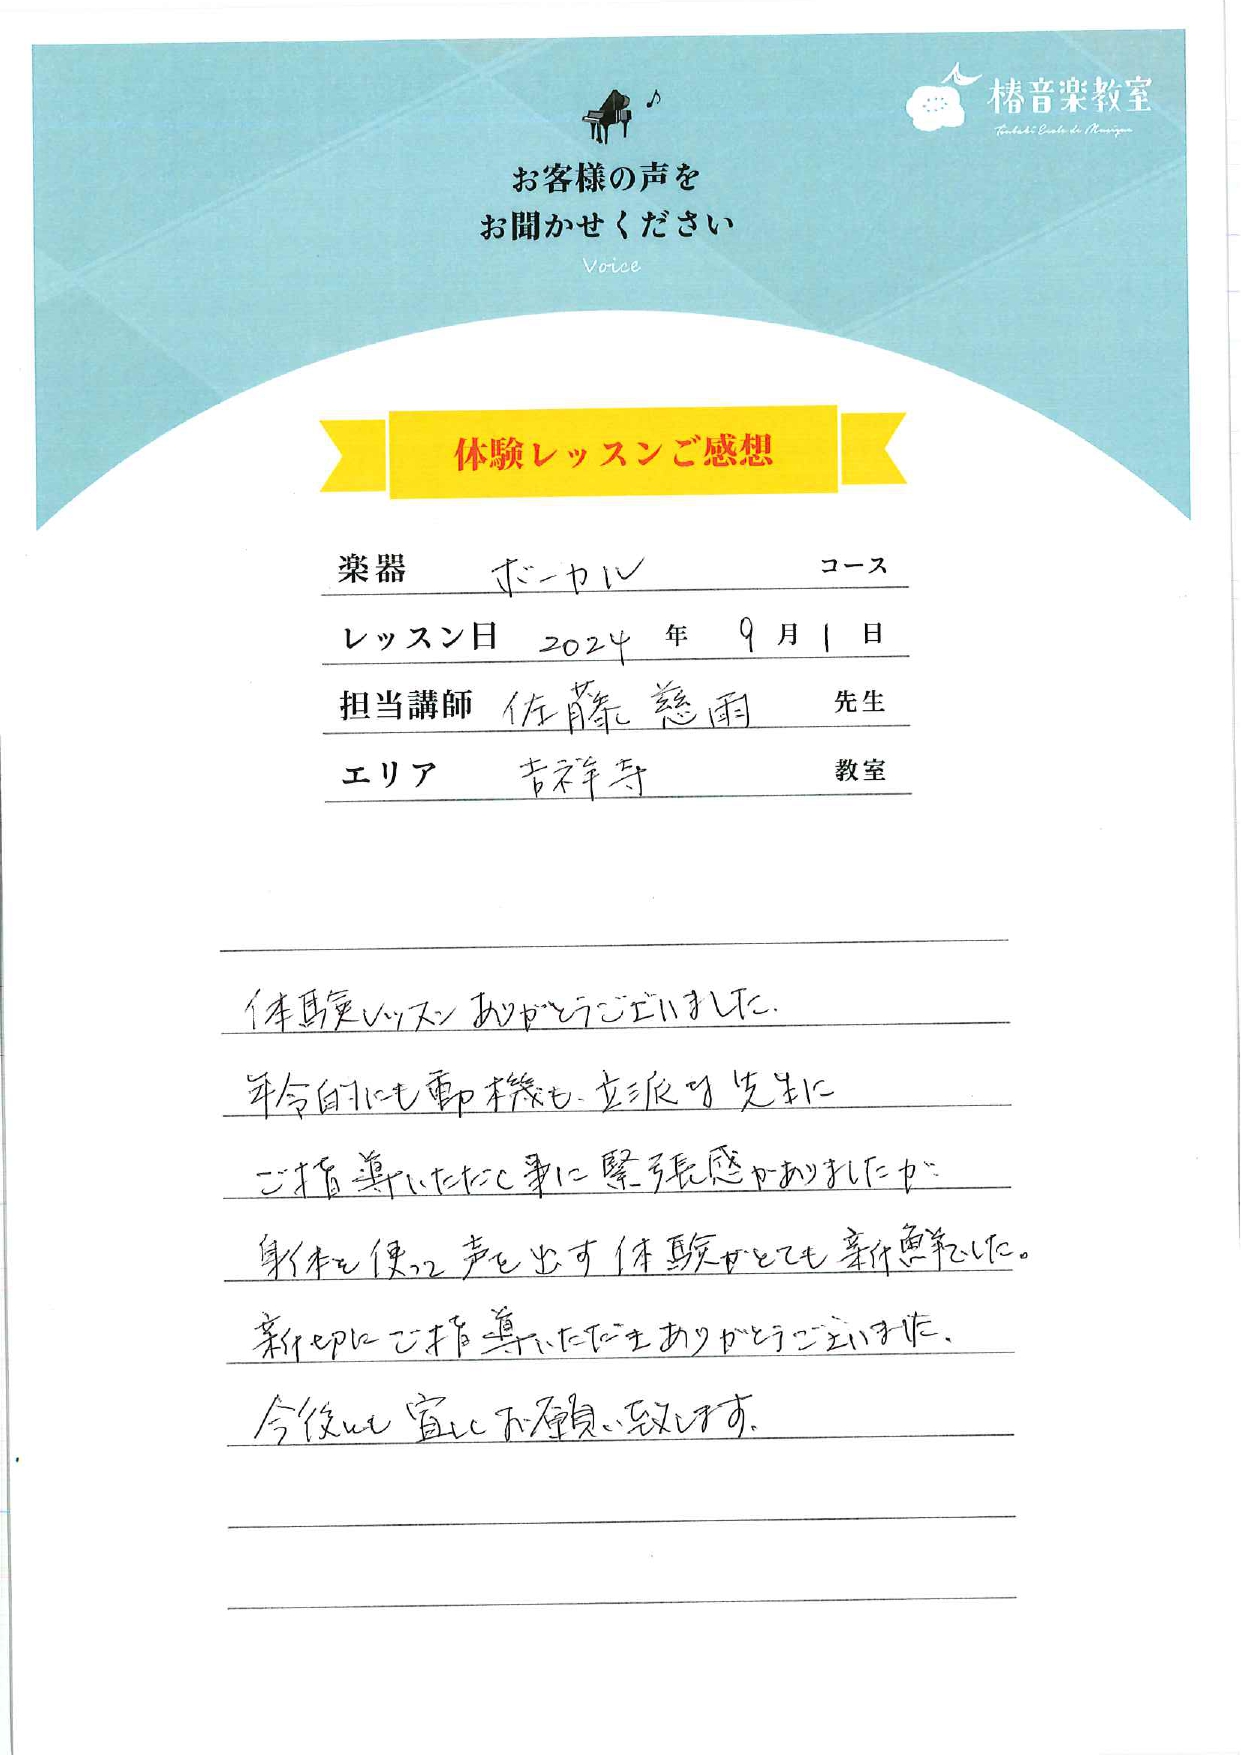 椿音楽教室
Tsubaki Ecole de Musique
お客様の声を
お聞かせください
Voice
体験レッスンご感想
楽器 ボーカル コース
レッスン日 2024 年 9 月 1 日
担当講師 佐藤 慈雨 先生
エリア 吉祥寺 教室
体験レッスンありがとうございました.
年令的にも動機も、立派な先生に
ご指導いただく事に緊張感がありましたが
身体を使って声を出す体験がとても新鮮でした。
親切にご指導いただきありがとうございました.
今後とも宜しくお願い致します.